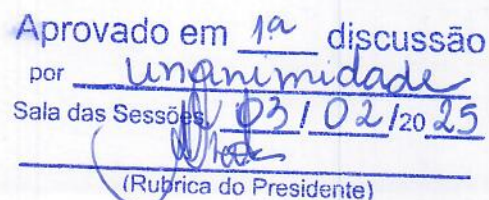 Aprovado em 1ª discussão
por unanimidade
Sala das Sessões 03 / 02 /20 25
(Rubrica do Presidente)